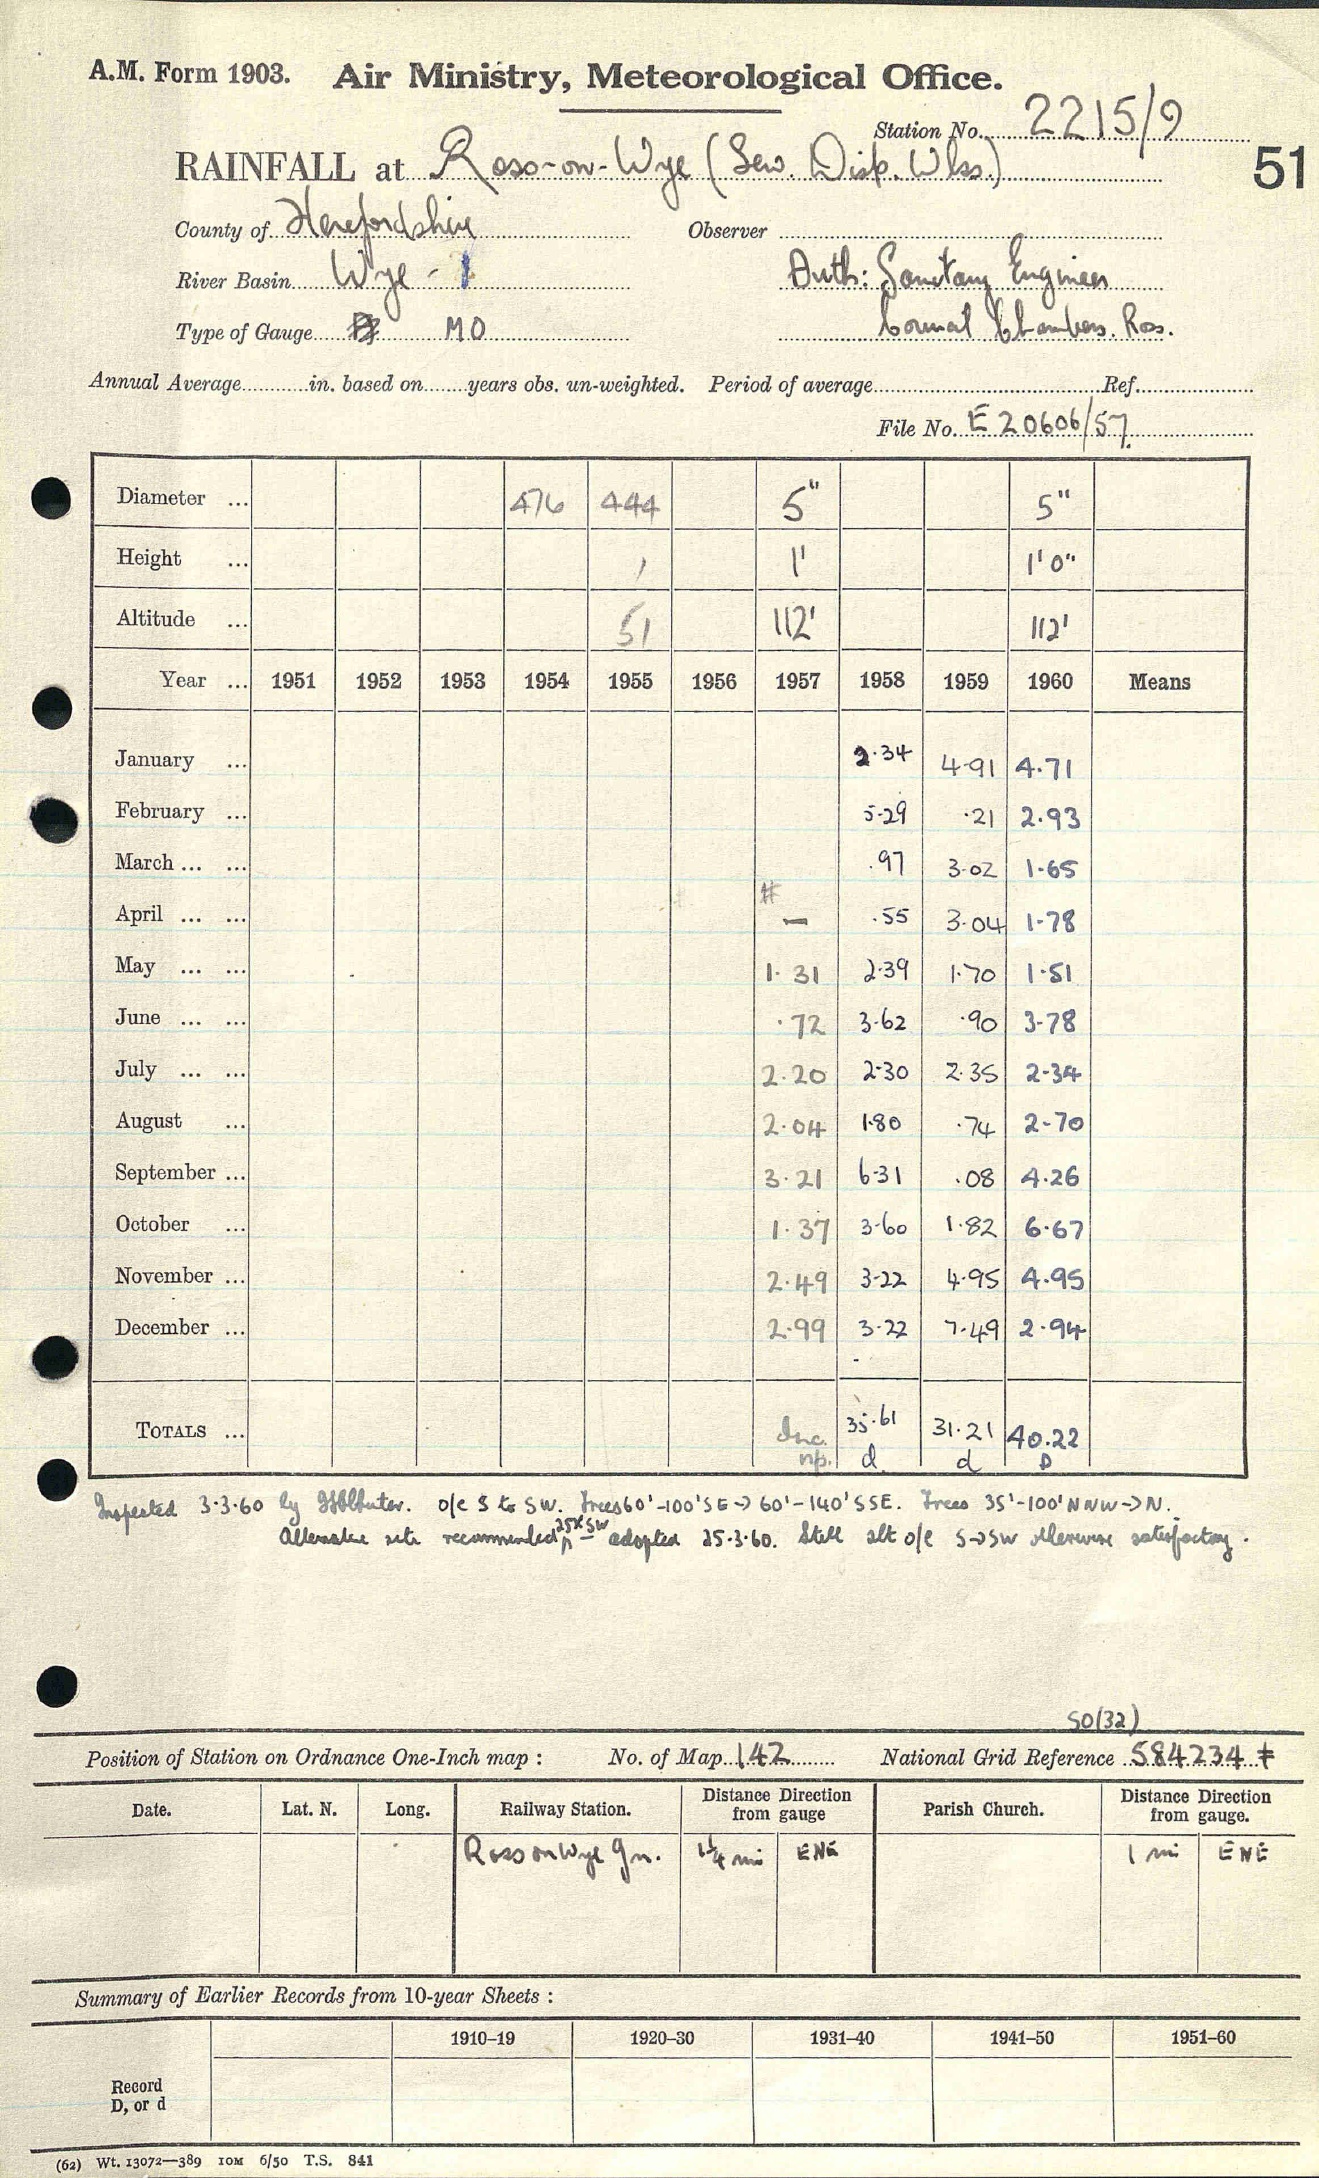 A.M. Form 1903. Air Ministry, Meteorological Office.
Station No. 2215/9
RAINFALL at Ross-on-Wye (Sew. Disp. Wks.)
51
County of Herefordshire Observer
River Basin Wye - 1 Auth: Sanitary Engineer
Type of Gauge MO Council Chambers. Ross.
Annual Average in. based on years obs. un-weighted. Period of average Ref.
File No. E 20606/57
Diameter ... 476 444 5" 5"
Height ... 1 1' 1'0"
Altitude ... 51 112' 112'
Year ... 1951 1952 1953 1954 1955 1956 1957 1958 1959 1960 Means
January ... 2.34 4.91 4.71
February ... 5.29 .21 2.93
March ... ... .97 3.02 1.65
April ... ... # — .55 3.04 1.78
May ... ... 1.31 2.39 1.70 1.51
June ... ... .72 3.62 .90 3.78
July ... ... 2.20 2.30 2.35 2.34
August ... 2.04 1.80 .74 2.70
September ... 3.21 6.31 .08 4.26
October ... 1.37 3.60 1.82 6.67
November ... 2.49 3.22 4.95 4.95
December ... 2.99 3.22 7.49 2.94
TOTALS ... Inc. 35.61 31.21 40.22
np. d d D
Inspected 3.3.60 by o/e S to SW. Trees 60'-100' SE -> 60'-140' SSE. Trees 35'-100' NNW -> N.
Alternative site recommended 25x SW adopted 25.3.60. Still slt o/e S->SW otherwise satisfactory.
SO(32)
Position of Station on Ordnance One-Inch map : No. of Map 142 National Grid Reference 584234 ‡
Date. Lat. N. Long. Railway Station. Distance Direction from gauge Parish Church. Distance Direction from gauge.
Ross on Wye Stn. 1¼ mi ENE 1 mi ENE
Summary of Earlier Records from 10-year Sheets :
1910–19 1920–30 1931–40 1941–50 1951–60
Record
D, or d
(62) Wt. 13072—389 10M 6/50 T.S. 841